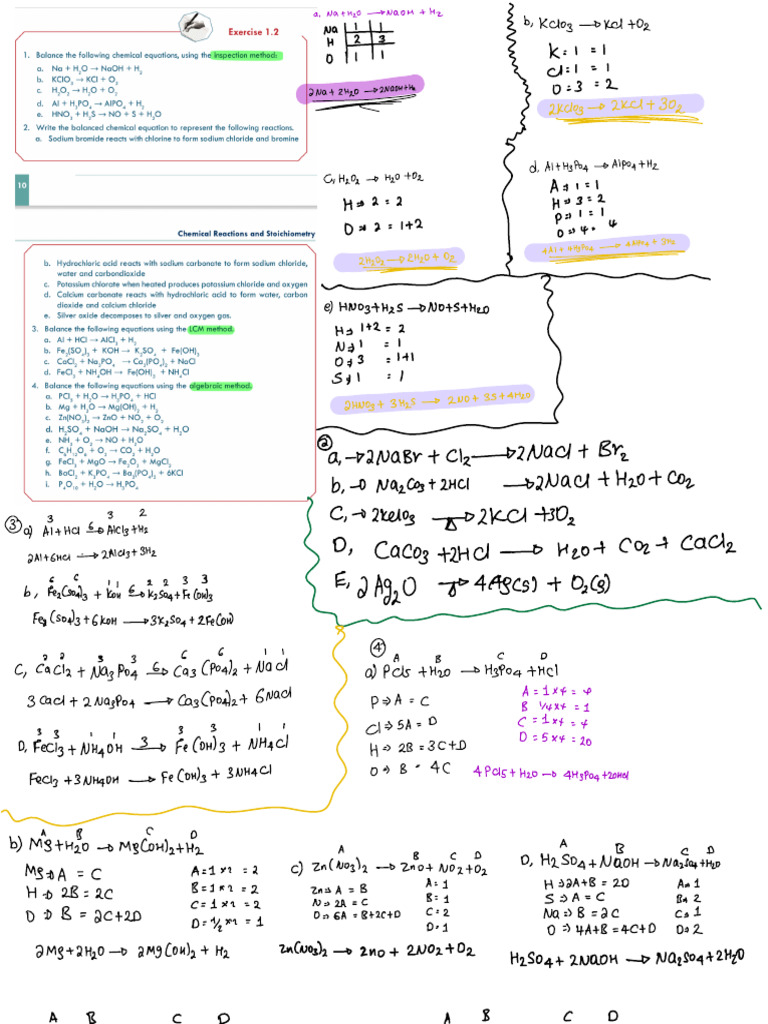 Exercise 1.2
1. Balance the following chemical equations, using the inspection method:
a. Na + H₂O → NaOH + H₂
b. KClO₃ → KCl + O₂
c. H₂O₂ → H₂O + O₂
d. Al + H₃PO₄ → AlPO₄ + H₂
e. HNO₃ + H₂S → NO + S + H₂O
2. Write the balanced chemical equation to represent the following reactions.
a. Sodium bromide reacts with chlorine to form sodium chloride and bromine
10
Chemical Reactions and Stoichiometry
b. Hydrochloric acid reacts with sodium carbonate to form sodium chloride,
water and carbondioxide
c. Potassium chlorate when heated produces potassium chloride and oxygen
d. Calcium carbonate reacts with hydrochloric acid to form water, carbon
dioxide and calcium chloride
e. Silver oxide decomposes to silver and oxygen gas.
3. Balance the following equations using the LCM method.
a. Al + HCl → AlCl₃ + H₂
b. Fe₂(SO₄)₃ + KOH → K₂SO₄ + Fe(OH)₃
c. CaCl₂ + Na₃PO₄ → Ca₃(PO₄)₂ + NaCl
d. FeCl₃ + NH₄OH → Fe(OH)₃ + NH₄Cl
4. Balance the following equations using the algebraic method.
a. PCl₅ + H₂O → H₃PO₄ + HCl
b. Mg + H₂O → Mg(OH)₂ + H₂
c. Zn(NO₃)₂ → ZnO + NO₂ + O₂
d. H₂SO₄ + NaOH → Na₂SO₄ + H₂O
e. NH₃ + O₂ → NO + H₂O
f. C₆H₁₂O₆ + O₂ → CO₂ + H₂O
g. FeCl₃ + MgO → Fe₂O₃ + MgCl₂
h. BaCl₂ + K₃PO₄ → Ba₃(PO₄)₂ + 6KCl
i. P₄O₁₀ + H₂O → H₃PO₄
a, Na+H₂O → NaOH + H₂
Na 1 1
H 2 3
O 1 1
2Na + 2H₂O → 2NaOH+H₂
b, KClO₃ → KCl +O₂
K = 1 = 1
Cl = 1 = 1
O = 3 = 2
2KClO₃ → 2KCl + 3O₂
C, H₂O₂ → H₂O +O₂
H ⇒ 2 = 2
O ⇒ 2 = 1+2
2H₂O₂ → 2H₂O + O₂
d, Al+H₃PO₄ → AlPO₄+H₂
A ⇒ 1 = 1
H ⇒ 3 = 2
P ⇒ 1 = 1
O ⇒ 4 = 4
e) HNO₃+H₂S → NO+S+H₂O
H ⇒ 1+2 = 2
N ⇒ 1 = 1
O ⇒ 3 = 1+1
S ⇒ 1 = 1
2HNO₃ + 3H₂S → 2NO + 3S + 4H₂O
②
a, → 2NaBr + Cl₂ → 2NaCl + Br₂
b, → Na₂CO₃ + 2HCl → 2NaCl + H₂O + CO₂
C, → 2KClO₃ →Δ 2KCl +3O₂
D, CaCO₃ +2HCl → H₂O + CO₂ + CaCl₂
E, 2Ag₂O →Δ 4Ag(s) + O₂(g)
③ 3 3 2
a) Al + HCl 6→ AlCl₃ + H₂
2Al+6HCl → 2AlCl₃ + 3H₂
6 6 1 1 2 2 3 3
b, Fe₂(SO₄)₃ + KOH 6→ K₂SO₄ + Fe(OH)₃
Fe₂(SO₄)₃ + 6KOH → 3K₂SO₄ + 2Fe(OH)
2 2 3 3 6 6 1 1
C, CaCl₂ + Na₃PO₄ 6→ Ca₃(PO₄)₂ + NaCl
3CaCl + 2Na₃PO₄ → Ca₃(PO₄)₂ + 6NaCl
3 3 1 1 3 3 1 1
D, FeCl₃ + NH₄OH 3→ Fe(OH)₃ + NH₄Cl
FeCl₃ + 3NH₄OH → Fe(OH)₃ + 3NH₄Cl
④
A B C D
a) PCl₅ +H₂O → H₃PO₄ +HCl
P ⇒ A = C
Cl ⇒ 5A = D
H ⇒ 2B = 3C+D
O ⇒ B = 4C
A = 1×4 = 4
B 1/4×4 = 1
C = 1×4 = 4
D = 5×4 = 20
4PCl₅+H₂O → 4H₃PO₄+20HCl
A B C D
b) Mg+H₂O → Mg(OH)₂+H₂
Mg ⇒ A = C
H ⇒ 2B = 2C
O ⇒ B = 2C+2D
A=1×2 = 2
B=1×2 = 2
C=1×2 = 2
D=1/2×2 = 1
2Mg+2H₂O → 2Mg(OH)₂ + H₂
A B C D
c) Zn(NO₃)₂ → ZnO+ NO₂+O₂
Zn ⇒ A = B
N ⇒ 2A = C
O ⇒ 6A = B+2C+D
A = 1
B = 1
C = 2
D = 1
Zn(NO₃)₂ → 2nO + 2NO₂+O₂
A B C D
D, H₂SO₄+NaOH → Na₂SO₄+H₂O
H ⇒ 2A+B = 2D
S ⇒ A = C
Na ⇒ B = 2C
O ⇒ 4A+B = 4C+D
A ⇒ 1
B ⇒ 2
C ⇒ 1
D ⇒ 2
H₂SO₄ + 2NaOH → Na₂SO₄+2H₂O
A B C D
A B C D